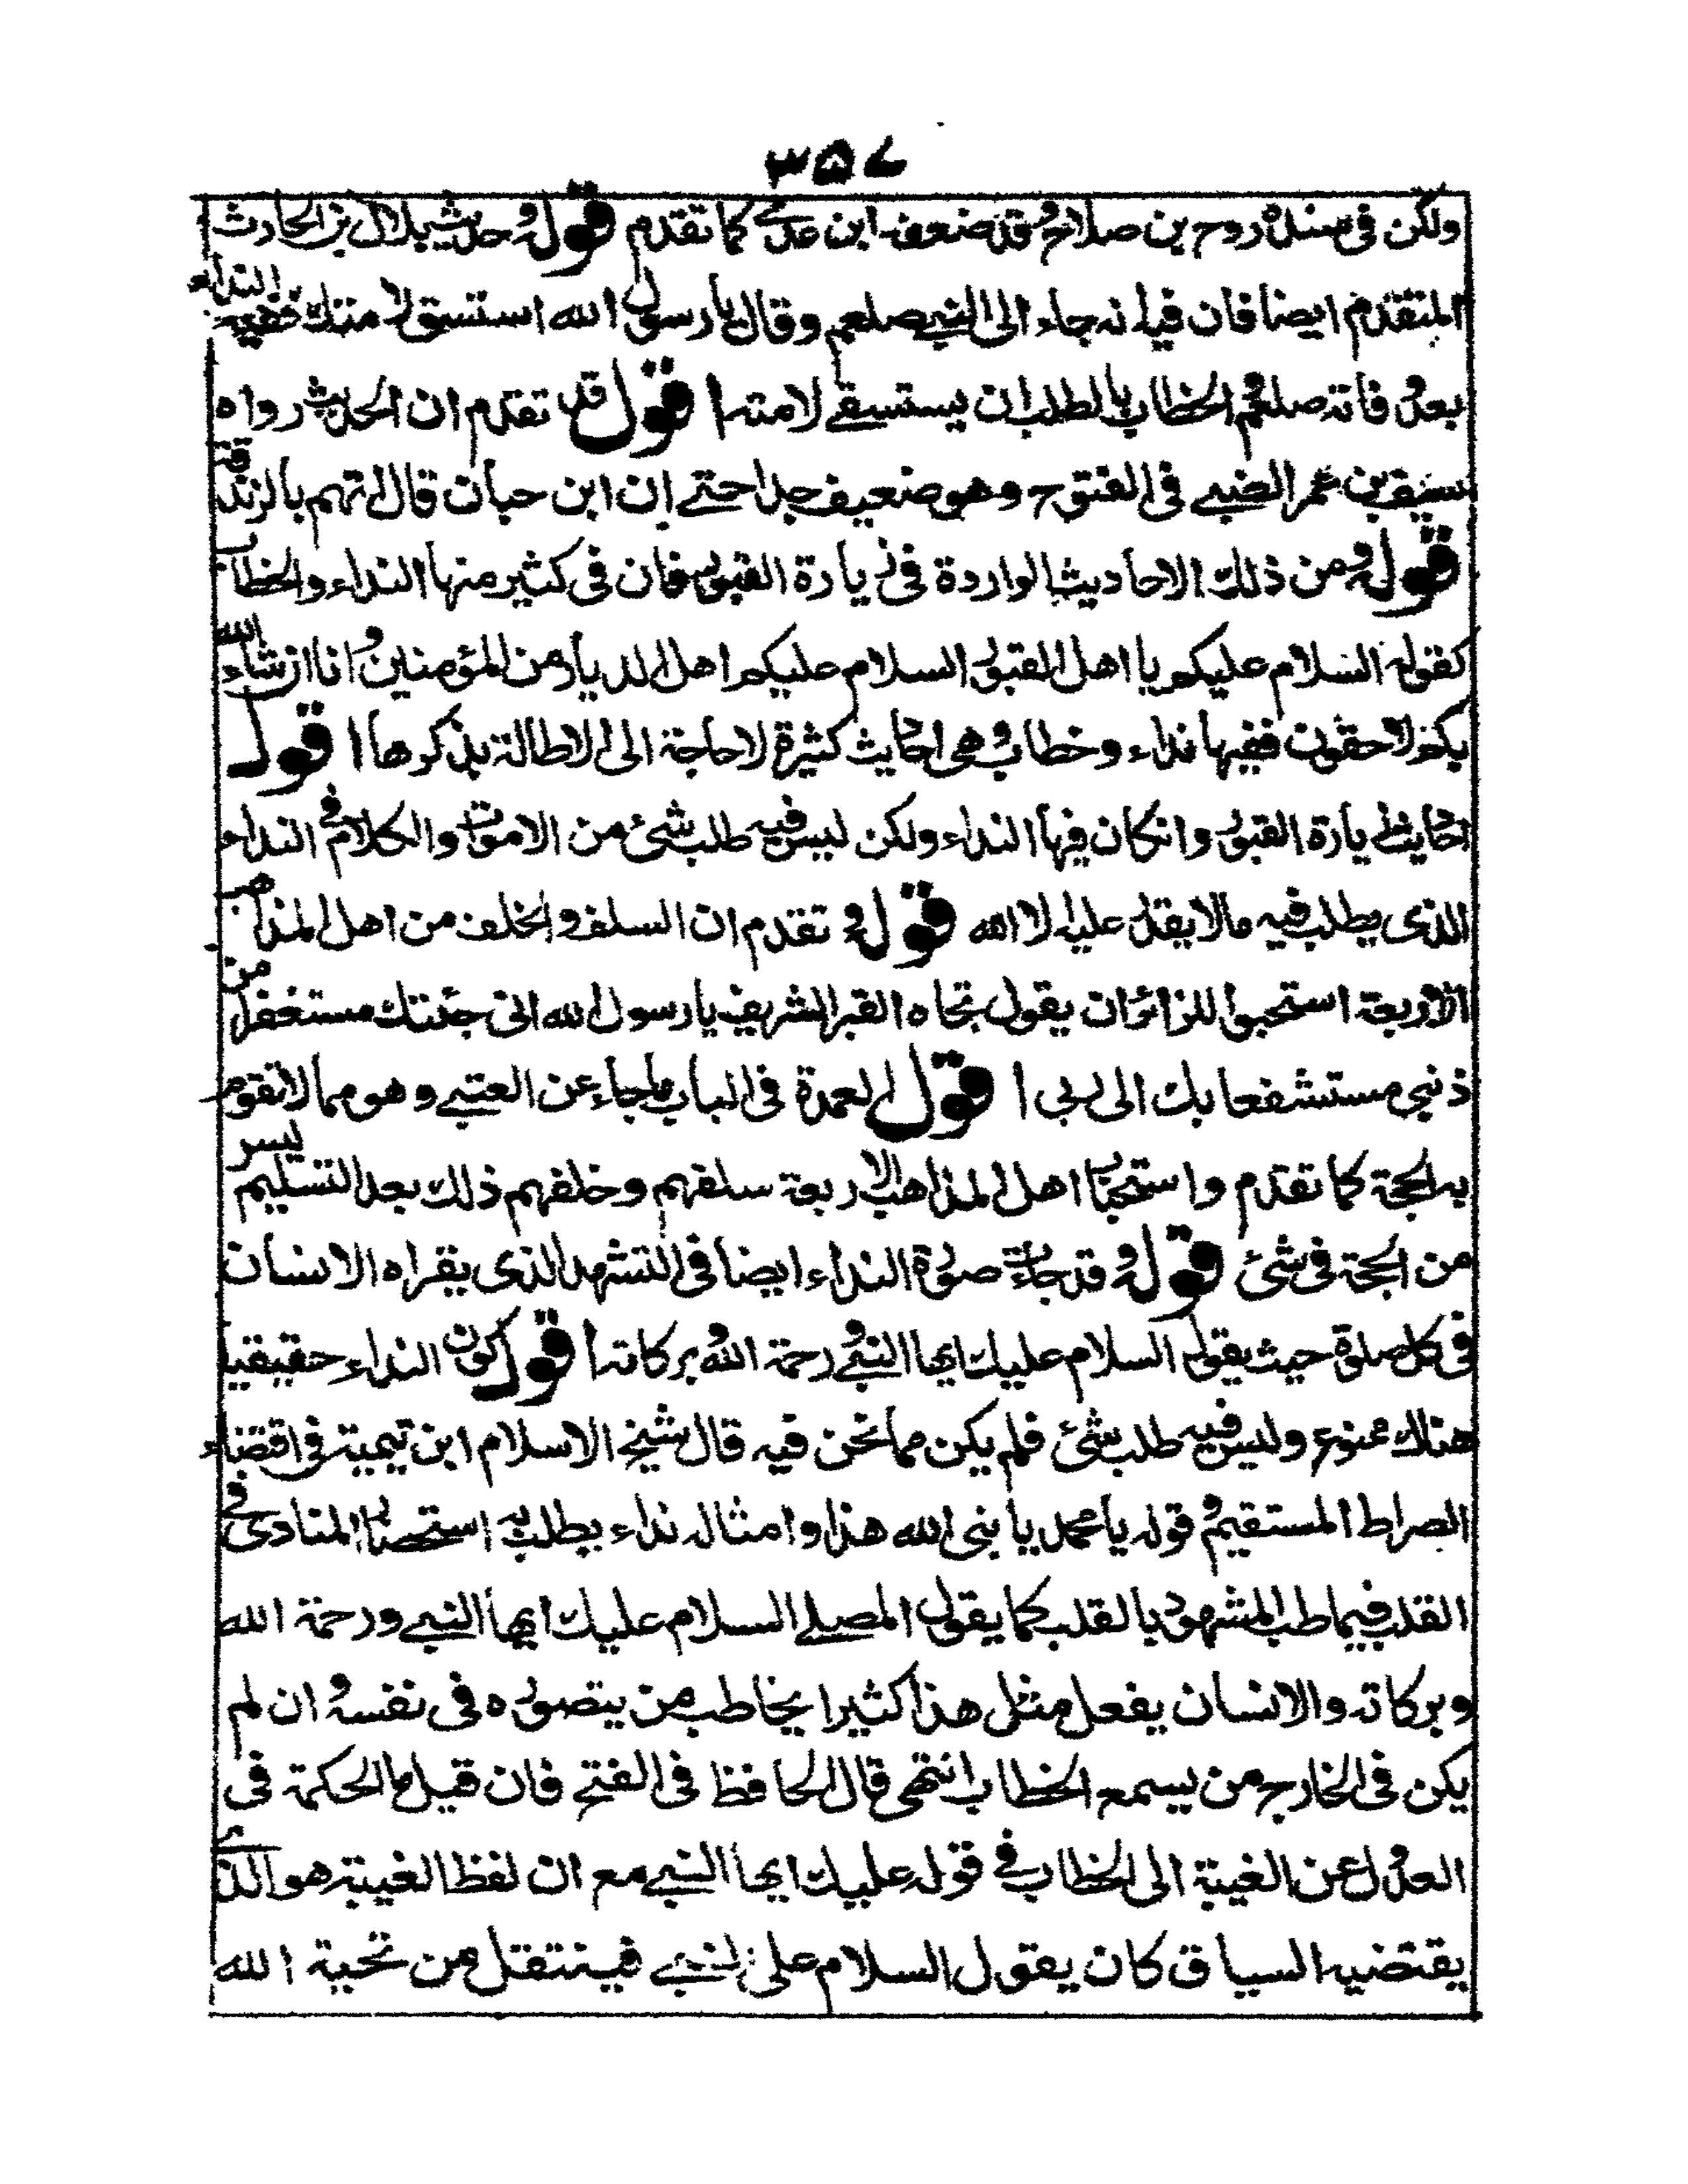 ٣٥٧
ولكن فى سنده روح بن صلاح وقد ضعفه ابن عدي كما تقدم قوله وحديث بلال بن الحارث
المتقدم ايضا فان فيه انه جاء الى النبي صلعم وقال يا رسول الله استسق لامتك ففيه النداء
بعد وفاته صلعم والخطاب بالطلب ان يستسقي لامته اقول قد تقدم ان الحديث رواه
سيف بن عمر الضبي فى الفتوح وهو ضعيف جدا حتى ان ابن حبان قال اتهم بالزندقة
قوله ومن ذلك الاحاديث الواردة فى زيارة القبور فان فى كثير منها النداء والخطاب
كقوله السلام عليكم يا اهل القبور السلام عليكم اهل الديار من المؤمنين وانا ان شاء الله
بكم لاحقون ففيها نداء وخطاب وهى احاديث كثيرة لا حاجة الى الاطالة بذكرها اقول
احاديث زيارة القبور وانكان فيها النداء ولكن ليس فيه طلب شئ من الاموات والكلام فى النداء
الذى يطلب فيه مالا يقدر عليه الا الله قوله وتقدم ان السلف والخلف من اهل المذاهب
الاربعة استحبوا للزائر ان يقول تجاه القبر الشريف يا رسول الله انى جئتك مستغفرا من
ذنبي مستشفعا بك الى ربى اقول العمدة فى الباب ماجاء عن العتبي وهو مما لا تقوم
به الحجة كما تقدم واستحباب اهل المذاهب الاربعة سلفهم وخلفهم ذلك بعد التسليم ليس
من الحجة فى شئ قوله وقد جاءت صورة النداء ايضا فى التشهد الذى يقراه الانسان
فى كل صلوة حيث يقول السلام عليك ايها النبي ورحمة الله وبركاته اقول كون النداء حقيقيا
هناك ممنوع وليس فيه طلب شئ فلم يكن مما نحن فيه قال شيخ الاسلام ابن تيمية فى اقتضاء
الصراط المستقيم وقوله يا محمد يا نبى الله هذا وامثاله نداء يطلب به استحضار المنادى فى
القلب فيخاطب المشهود بالقلب كما يقول المصلى السلام عليك ايها النبي ورحمة الله
وبركاته والانسان يفعل مثل هذا كثيرا يخاطب من يتصوره فى نفسه وان لم
يكن فى الخارج من يسمع الخطاب انتهى قال الحافظ فى الفتح فان قيل ما الحكمة فى
العدول عن الغيبة الى الخطاب فى قوله عليك ايها النبي مع ان لفظ الغيبة هو الذى
يقتضيه السياق كان يقول السلام على النبي فينتقل من تحية الله